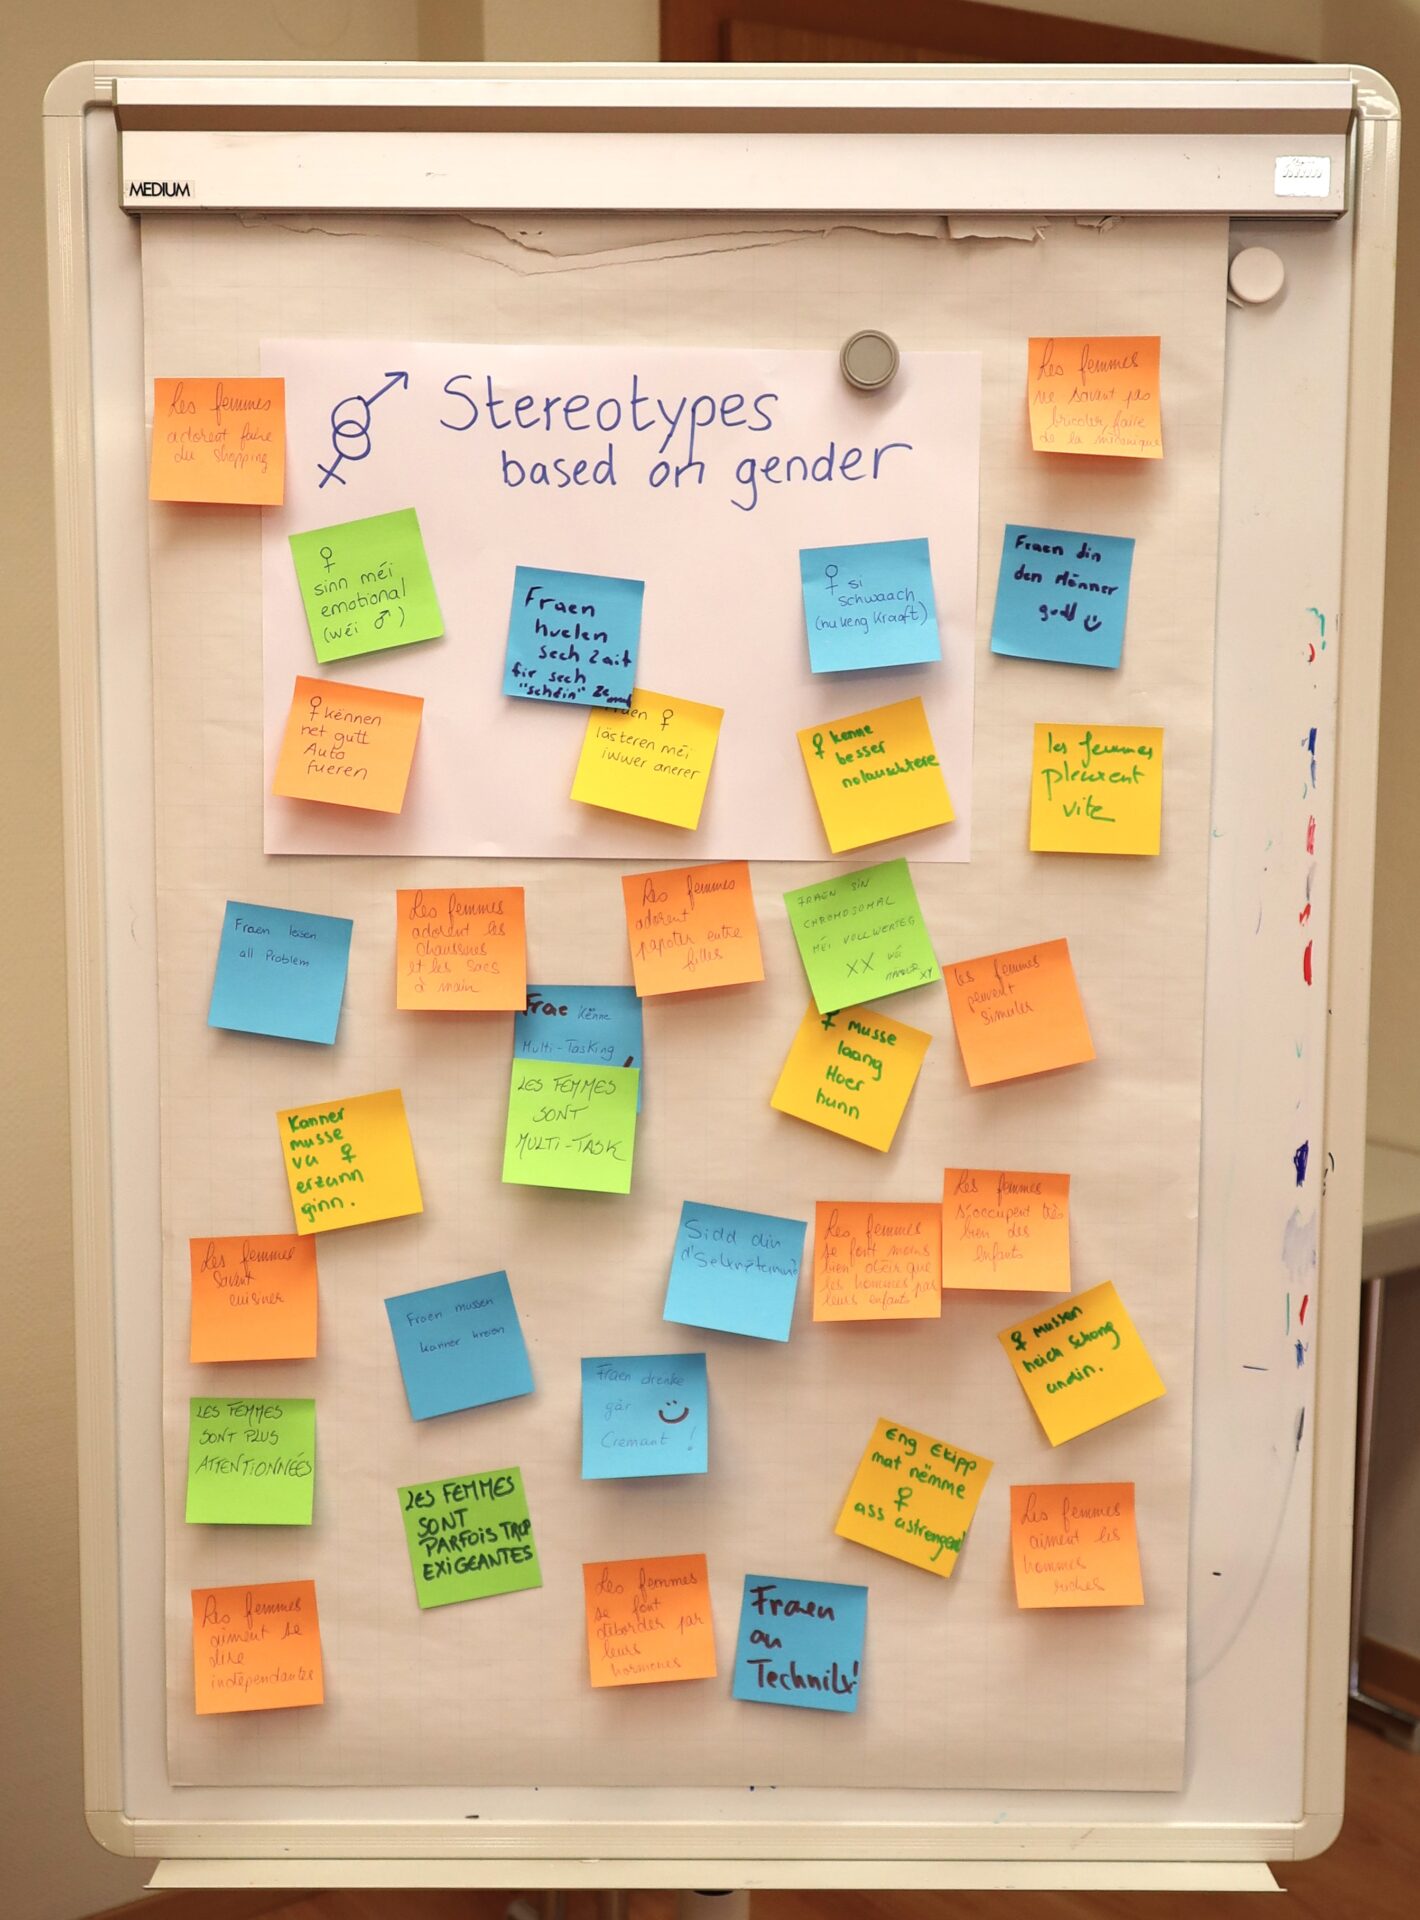 MEDIUM
Stereotypes
based on gender
Les femmes
adorent faire
du shopping
Les femmes
ne savent pas
bricoler, faire
de la mécanique
♀
sinn méi
emotional
(wéi ♂)
Fraen
huelen
sech Zait
fir sech
"schéin" ze
♀ si
schwaach
(nu keng Kraaft)
Fraen din
den Männer
gutt
♀ kënnen
net gutt
Auto
fueren
Fraen ♀
lästeren méi
iwwer anerer
♀ kenne
besser
nolauschtere
les femmes
pleurent
vite
Fraen leisen
all Problem
Les femmes
adorent les
chaussures
et les sacs
à main
Les femmes
adorent
papoter entre
filles
FRAEN SIN
CHROMOSOMAL
MÉI VOLLWERTEG
XX WÉI
MÄNNER XY
les femmes
peuvent
simuler
Frae kënne
Multi-Tasking
!
LES FEMMES
SONT
MULTI-TASK
♀ musse
laang
Hoer
hunn
Kanner
musse
vu ♀
erzunn
ginn.
Les femmes
savent
cuisiner
Fraen mussen
kanner kreien
Sidd din
Les femmes
se font moins
bien obéir que
les hommes par
leurs enfants
Les femmes
s'occupent très
bien des
enfants
♀ mussen
héich Schong
undin.
LES FEMMES
SONT PLUS
ATTENTIONNÉES
LES FEMMES
SONT
PARFOIS TROP
EXIGEANTES
Fraen drenke
gär
Cremant !
Eng Ekipp
mat nëmme
♀
ass ustrengend!
Les femmes
aiment les
hommes
riches
Les femmes
aiment se
dire
indépendantes
Les femmes
se font
déborder par
leurs
hormones
Fraen
an
Technik!